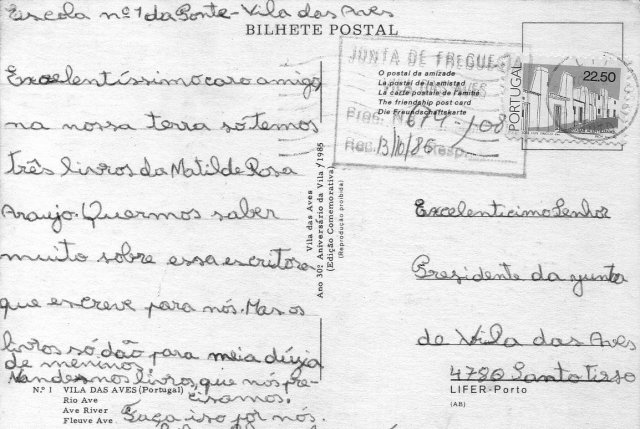 Escola nº 1 da Ponte - Vila das Aves
BILHETE POSTAL
Excelentíssimo caro amigo,
na nossa terra só temos
três livros da Matilde Rosa
Araujo. Quermos saber
muito sobre essa escritora
que escreve para nós. Mas os
livros só dão para meia dúzia
de meninos.
Mandesnos livros, que nós pre-
cisamos.
Faça isso por nós.
N.º 1 VILA DAS AVES (Portugal)
Rio Ave
Ave River
Fleuve Ave
Vila das Aves
Ano 30º Aniversário da Vila / 1985
(Edição Comemorativa)
(Reprodução proibida)
JUNTA DE FREGUESIA
VILA DAS AVES
674
13/10/86
O postal da amizade
La postal de la amistad
La carte postale de l'amitié
The friendship post card
Die Freundschaftskarte
PORTUGAL
22.50
Excelenticimo Senhor
Presidente da junta
de Vila das Aves
4780 Santo Tirso
LIFER - Porto
(AB)